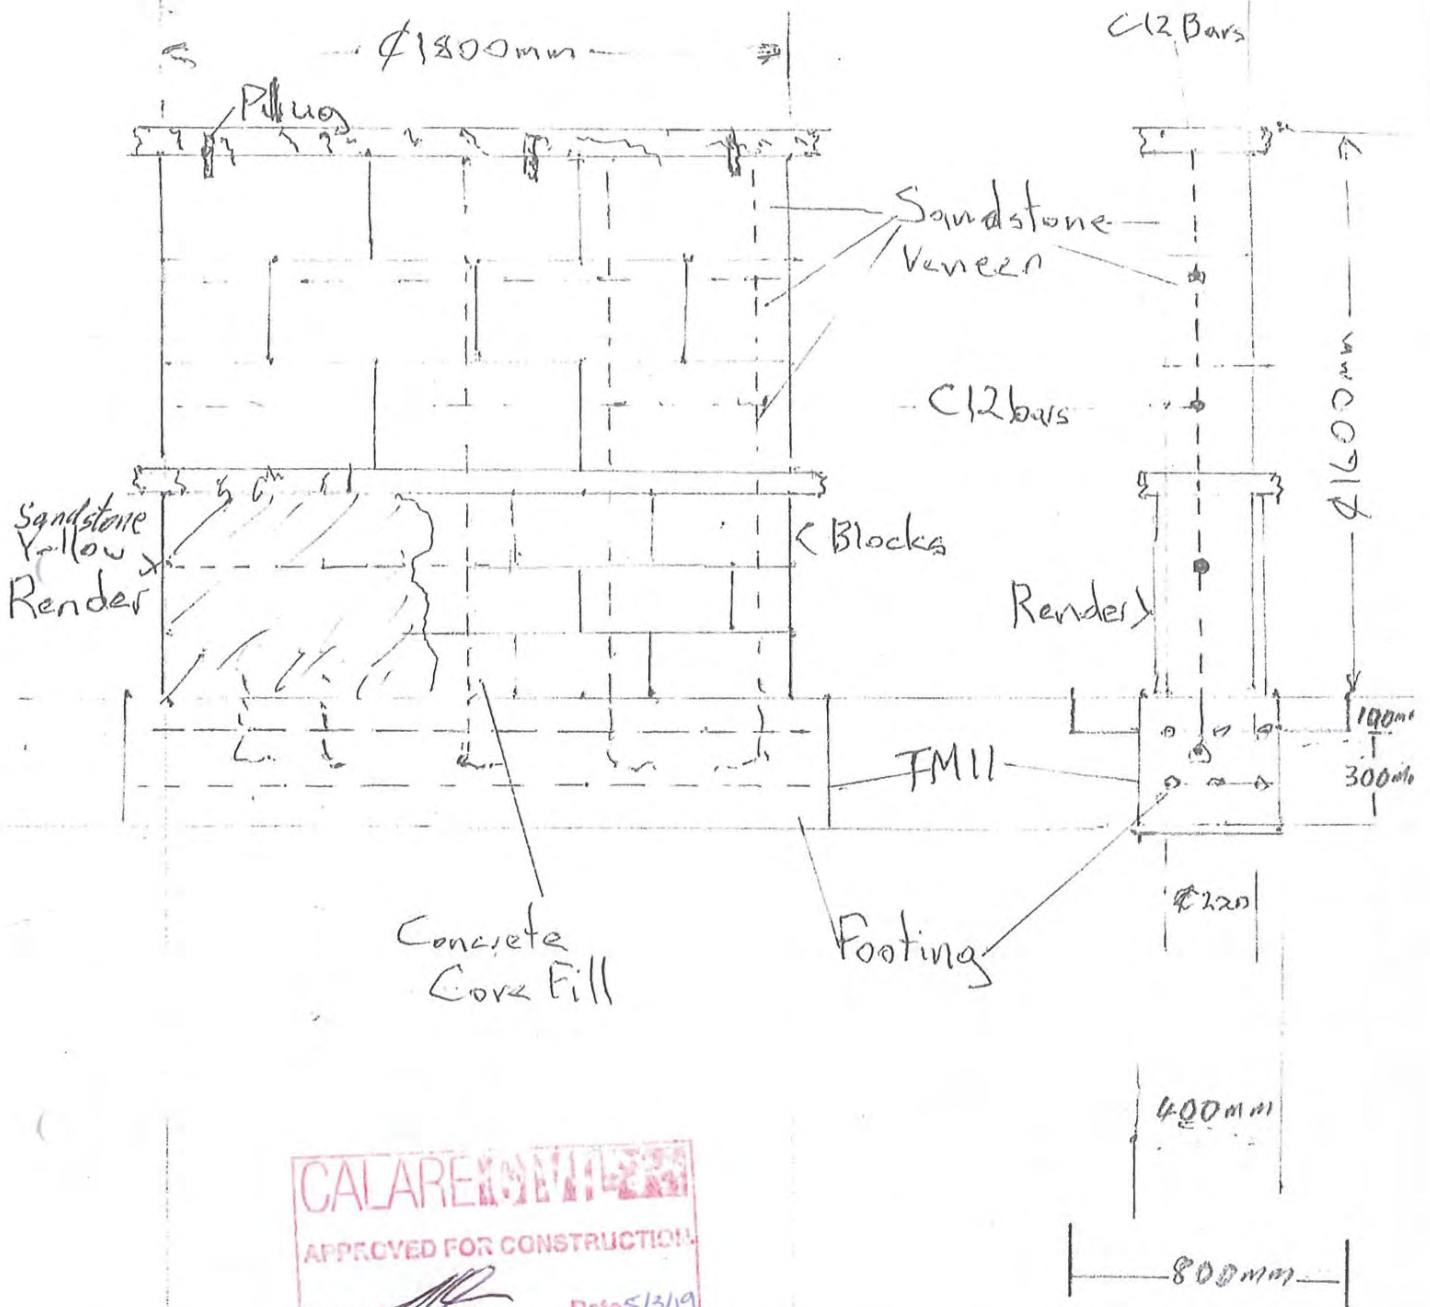 ₵1800mm
C12 Bars
Pllug
Sandstone
Veneer
C12 bars
₵1700mm
Sandstone
Yellow
Render
Blocks
Render
100mm
TM11
300mm
₵220
Concrete
Core Fill
Footing
400mm
CALARE CIVIL
APPROVED FOR CONSTRUCTION
Date 5/3/19
800mm